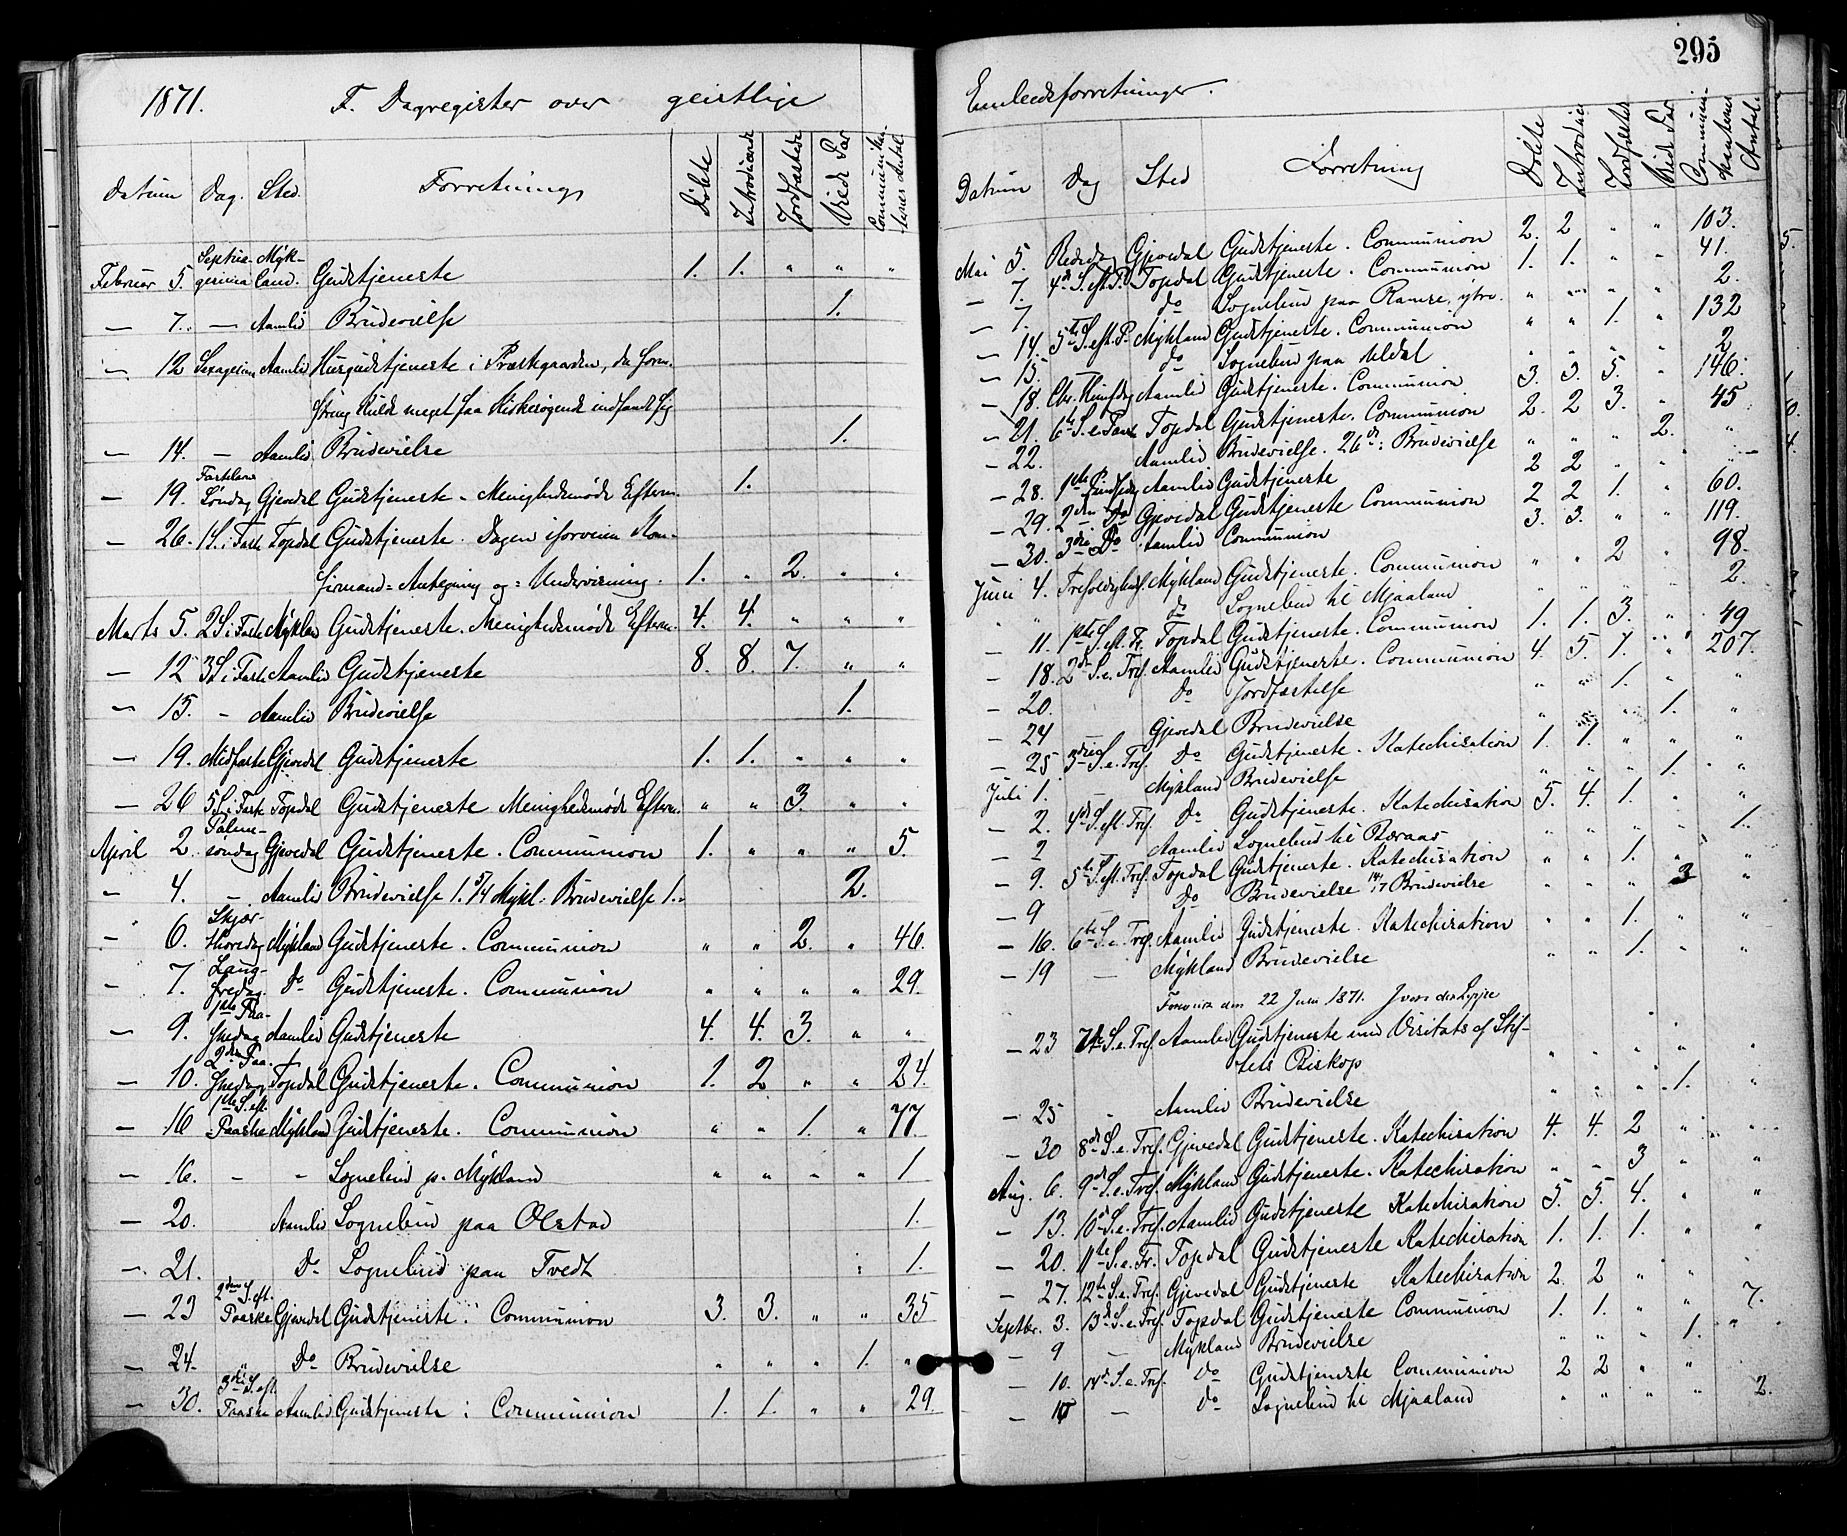 1871. F. Dagregister over geistlige
Datum Dag. Sted. Forretning Døbte Introducerede Jordfæstede Viede Par Communikanternes Antal
Februar 5. Septuagesima Mykland. Gudstjeneste 1. 1. " " "
— 7. — Aamlid Brudevielse 1.
— 12 Sexagesima Aamlid Husgudstjeneste i Præstegaarden, da form.
string Kulde meget faa Kirkesøgende indfandt sig
— 14. — Aamlid Brudevielse 1.
— 19. Fastelavns Søndag Gjøvdal Gudstjeneste - Menighedsmøde Efterm. 1.
— 26. 1 S. i Faste Topdal Gudstjeneste. Dagen iforveien Kon-
firmand = Antegning og = Undervisning. 1. " 2. " "
Marts 5. 2 S i Faste Mykland Gudstjeneste. Menighedsmøde Efterm. 4. 4. " " "
— 12 3 S i Faste Aamlid Gudstjeneste 8. 8. 7. " "
— 15. - Aamlid Brudevielse 1.
— 19. Midfaste Gjøvdal Gudstjeneste 1. 1. " " "
— 26 5 S i Faste Topdal Gudstjeneste Menighedsmøde Efterm. " " 3. " "
April 2 Palmesøndag Gjøvdal Gudstjeneste. Communion 1. " " " 5.
— 4. - Aamlid Brudevielse 1. 5/4 Mykl: Brudevielse 1. 2.
" 6. Skjærthorsdag Mykland Gudstjeneste. Communion " " 2. " 46.
— 7. Langfredag Do Gudstjeneste. Communion " " " " 29.
— 9. 1ste Paaskedag Aamlid Gudstjeneste 4. 4. 3. " "
— 10. 2den Paaskedag Topdal Gudstjeneste. Communion 1. 2 " " 24.
— 16 1ste S. eft. Paaske Mykland Gudstjeneste. Communion " " 1. " 77.
— 16. - " Sognebud p. Mykland " " " " 1.
— 20. Aamlid Sognebud paa Olstad 1.
— 21. Do Sognebud paa Tvedt 1.
— 23 2den S. eft. Paaske Gjøvdal Gudstjeneste. Communion 3. 3. " " 35
— 24. " Do Brudevielse " " " 1. "
— 30. 3die S. eft. Paaske Aamlid Gudstjeneste: Communion 1. 1. " " 29.
295
Embedsforretninger.
Datum Dag Sted Forretning Døbte Introducer. Jordfæstet Viede Par Communikanternes Antal.
Mai 5. Bededag Gjøvdal Gudstjeneste. Communion 2. 2 " " 103.
— 7. 4de S. eft. P. Topdal Gudstjeneste. Communion 1. 1. " " 41.
— 7. do Sognebud paa Ramse, ytre. " " " " 2.
— 14. 5te S. eft. P. Mykland Gudstjeneste. Communion " " 1. " 132
— 15. do Sognebud paa Uldal " " " " 2
— 18. Chr. Himfdg Aamlid Gudstjeneste. Communion 3. 3. 5. " 146.
— 21. 6te S. e. Paas Topdal Gudstjeneste. Communion 2. 2 3. " 45
— 22. Aamlid Brudevielse. 26de: Brudevielse " " " 2. "
— 28. 1ste Pindsedag Aamlid Gudstjeneste 2 2 " " "
— 29. 2den Do Gjøvdal Gudstjeneste Communion 2 2 1. " 60.
— 30. 3die Do Aamlid Communion 3. 3. " " 119.
Juni 4. Trefoldighedsf. Mykland Gudstjeneste. Communion " " 2 " 98.
" " do Sognebud til Mjaaland " " " " 2.
— 11. 1ste S. eft. Tr. Topdal Gudstjeneste. Communion 1. 1. 3. " 49
— 18. 2den S. e. Tref. Aamlid Gudstjeneste. Communion 4. 5. 1. " 207.
— 20. do Jordfæstelse " " 1. " "
— 24 Gjøvdal Brudevielse " " " 1. "
— 25 3die S. e. Tref. Do Gudstjeneste. Katechisation 1. 1. " " "
Juli 1. Mykland Brudevielse " " " 1. "
— 2. 4de S. eft. Tref. Do Gudstjeneste. Katechisation 5. 4. 1. " "
— 2 — Aamlid Sognebud til Baraas " " " " 1.
— 9. 5te S. eft. Tref. Topdal Gudstjeneste. Katechisation " " 1. " "
— 9 Do Brudevielse 14/7 Brudevielse " " " 3 "
— 16. 6te S. e. Tref. Aamlid Gudstjeneste. Katechisation " " 1. " "
— 19 — Mykland Brudevielse " " 1. " "
22 Juni 1871.
— 23 7de S. e. Tref. Aamlid Gudstjeneste med Visitats af Stif-
tets Biskop " " " " "
— 25 - Aamlid Brudevielse " " " 1. "
— 30 8de S. e. Tref. Gjøvdal Gudstjeneste. Katechisation 4. 4. 2 " "
Aug. 6. 9de S. e. Tref. Mykland Gudstjeneste. Katechisation " - 3 " "
— 13. 10de S. e. Tref. Aamlid Gudstjeneste Katechisation 5. 5. 4. " "
— 20. 11te S. e. Tr. Topdal Gudstjeneste Katechisation 1. 1. 1. " "
— 27. 12te S. e. Tref. Gjøvdal Gudstjeneste Katechisation 2. 2 " " "
Septbr. 3. 13de S. e. Tref. Topdal Gudstjeneste Communion 1. 1. " " 7.
— 9 — Mykland Brudevielse " " " 1. "
— 10. 14de S. e. Tref. Do Gudstjeneste Communion 2 2 " "
— 10 — Do Sognebud til Mjaaland " " " " 2.